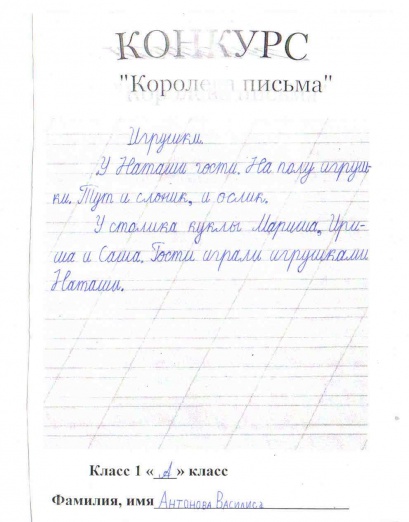 КОНКУРС
"Королева письма"
Игрушки.
У Наташи гости. На полу игруш-
ки. Тут и слоник, и ослик.
У столика куклы Мариша, Ири-
ша и Саша. Гости играли игрушками
Наташи.
Класс 1 «А» класс
Фамилия, имя Антонова Василиса